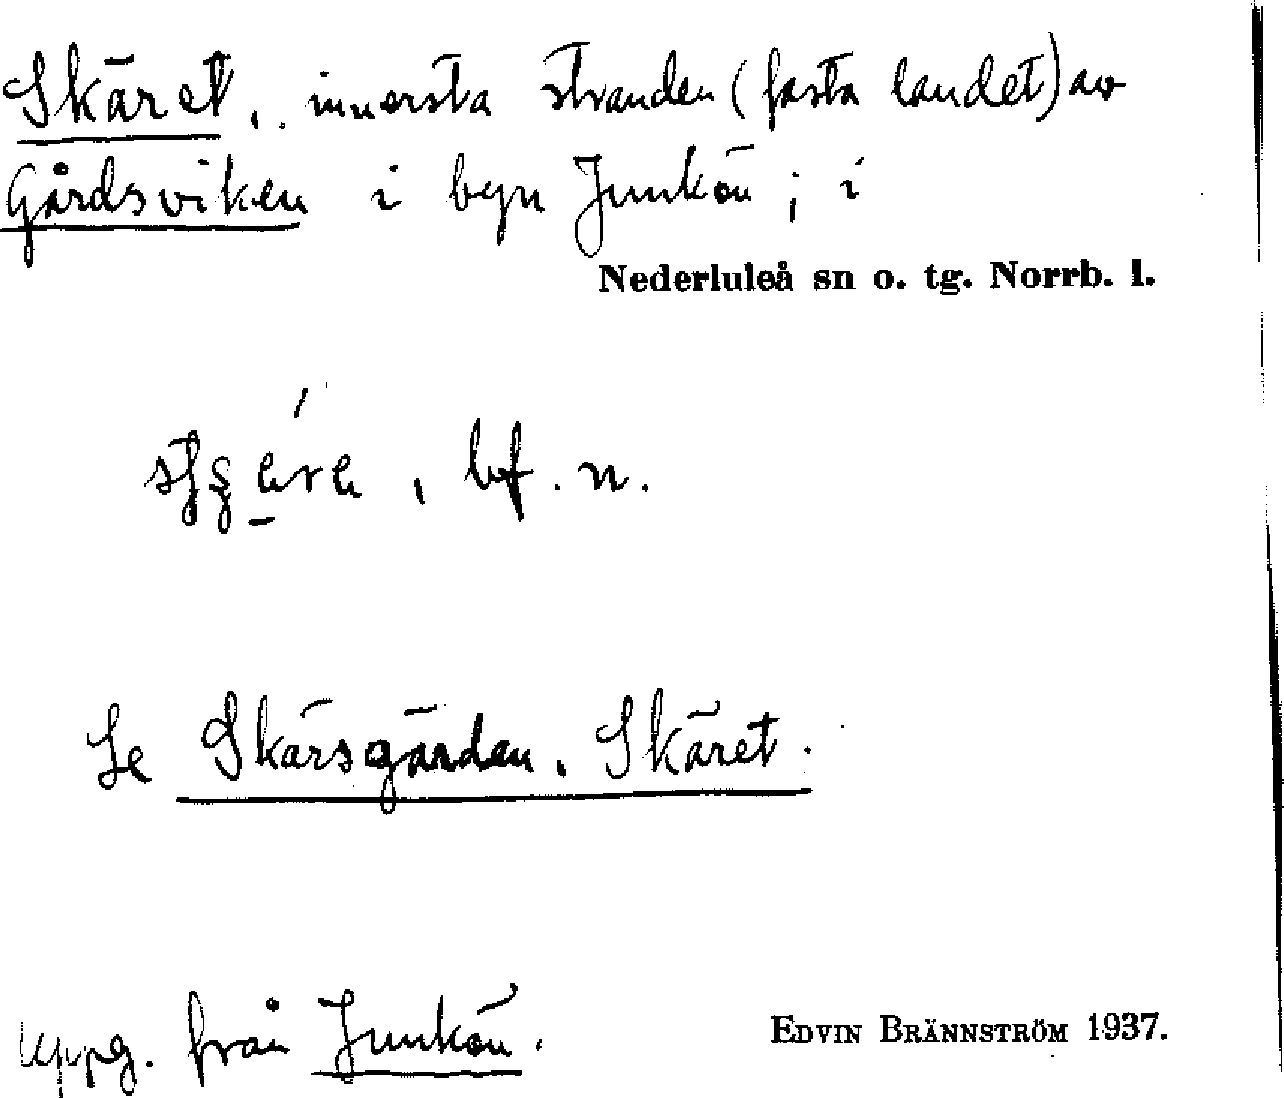 Skäret, innersta stranden (fasta landet) av
Gårdsviken i byn Junkön; i
Nederluleå sn o. tg. Norrb. l.
, bf. n.
Se Skärsgården, Skäret.
Uppg. från Junkön.
EDVIN BRÄNNSTRÖM 1937.